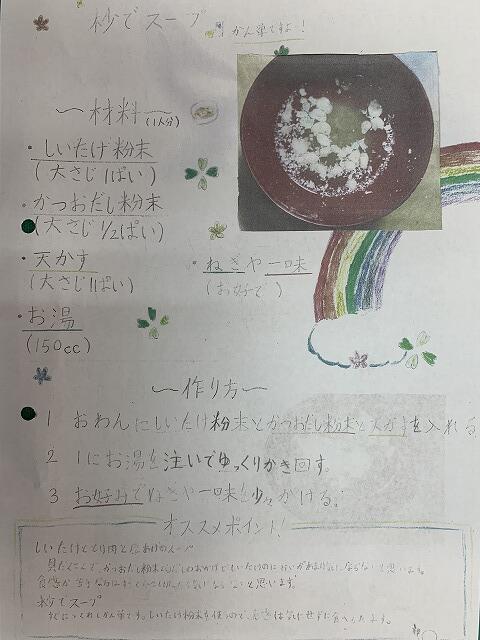 秒でスープ
かん単ですよ！
〜材料〜(1人分)
・しいたけ粉末
(大さじ1ぱい)
・かつおだし粉末
(大さじ1/2ぱい)
・天かす
(大さじ1ぱい)
・ねぎや一味
(お好で)
・お湯
(150cc)
〜作り方〜
1 おわんにしいたけ粉末とかつおだし粉末と天かすを入れる
2 1にお湯を注いでゆっくりかき回す。
3 お好みでねぎや一味を少々かける。
オススメポイント！
しいたけととり肉と
のスープ
と思います。
食感が
と思います。
秒でスープ
しいたけ粉末を使うので、食感は気にせずに食べ